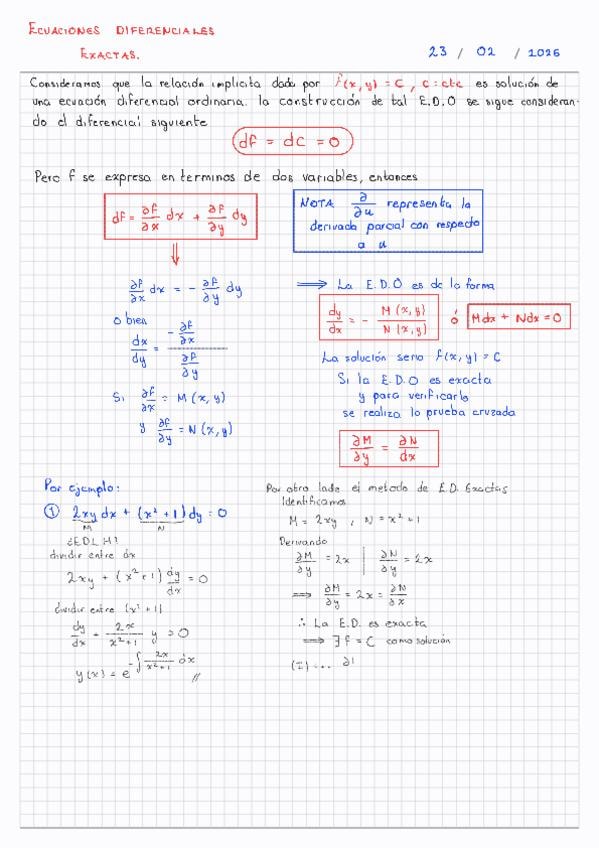 ECUACIONES DIFERENCIALES
EXACTAS.
23 / 02 / 2026
Consideramos que la relación implicita dada por f(x,y) = C, c = cte es solución de
una ecuación diferencial ordinaria. la construcción de tal E.D.O se sigue consideran-
do el diferencial siguiente
df = dc = 0
Pero f se expresa en terminos de dos variables, entonces
df = ∂f/∂x dx + ∂f/∂y dy
NOTA ∂/∂u representa la
derivada parcial con respecto
a u
⇓
∂f/∂x dx = - ∂f/∂y dy
o bien
dx/dy = (- ∂f/∂x)/(∂f/∂y)
Si ∂f/∂x = M(x,y)
y ∂f/∂y = N(x,y)
⟹ La E.D.O es de la forma
dy/dx = - M(x,y)/N(x,y) ó Mdx + Ndx = 0
La solución seria f(x,y) = C
Si la E.D.O es exacta
y para verificarlo
se realiza la prueba cruzada
∂M/∂y = ∂N/dx
Por ejemplo:
① 2xy dx + (x² + 1) dy = 0
M N
¿EDLH?
dividir entre dx
2xy + (x² + 1) dy/dx = 0
dividir entre (x² + 1)
dy/dx + 2x/(x²+1) y = 0
y(x) = e^(-∫ 2x/(x²+1) dx) //
Por otro lado el metodo de E.D. Exactas
Identificamos
M = 2xy , N = x² + 1
Derivando
∂M/∂y = 2x | ∂N/∂y = 2x
⟹ ∂M/∂y = 2x = ∂N/∂x
∴ La E.D. es exacta
⟹ ∃ f = C como solución
(I) ... ∂f